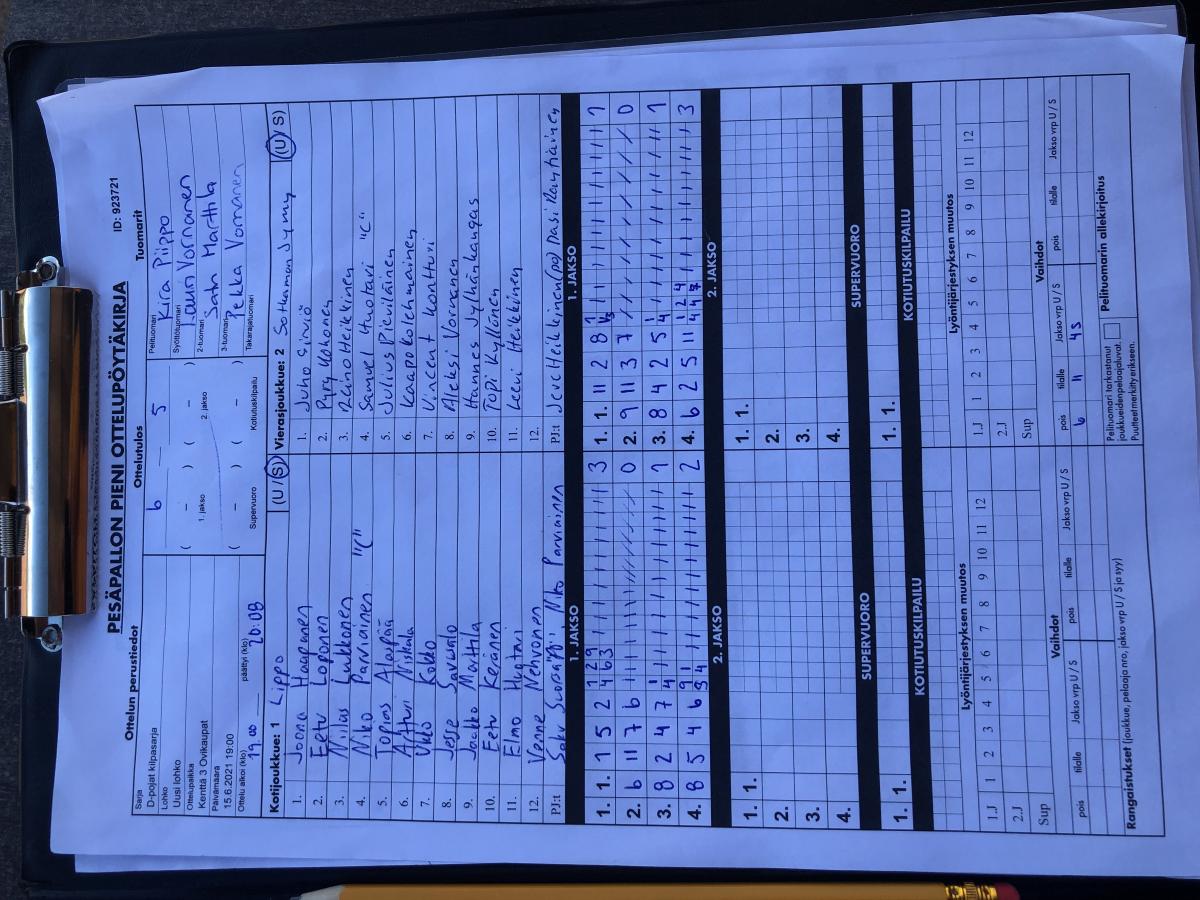 PESÄPALLON PIENI OTTELUPÖYTÄKIRJA
ID: 923721
Ottelun perustiedot
Sarja
D-pojat kilpasarja
Lohko
Uusi lohko
Ottelupaikka
Kenttä 3 Ovikaupat
Päivämäärä
15.6.2021 19:00
Ottelu alkoi (klo) 19.00 päättyi (klo) 20:08
Ottelutulos
6 – 5
( – ) ( – )
1. jakso 2. jakso
( – ) ( – )
Supervuoro Kotiutuskilpailu
Tuomarit
Pelituomari Kira Piippo
Syöttötuomari Lauri Vornanen
2-tuomari Satu Marttila
3-tuomari Pekka Vornanen
Takarajatuomari
Kotijoukkue: 1 Lippo (U / S)
1. Joona Haapanen
2. Eetu Loponen
3. Niilas Lukkonen
4. Niko Parviainen "C"
5. Topias Alaspää
6. Artturi Niskala
7. Ukko Kokko
8. Jesse Savusalo
9. Jaakko Marttila
10. Eetu Keränen
11. Elmo Huotari
12. Venne Nehvonen
PJ:t Niko Parviainen
Vierasjoukkue: 2 Sotkamon Jymy (U / S)
1. Juho Sirviö
2. Pyry Kokonen
3. Reino Heikkinen
4. Samuel Huotari "C"
5. Julius Pieviläinen
6. Kaapo Kolehmainen
7. Vincent Kontturi
8. Aleksi Vornanen
9. Hannes Jylhänkangas
10. Topi Kyllönen
11. Leevi Heikkinen
12.
PJ:t Jere Heikkinen (po) Pasi Rautiainen
1. JAKSO
1. 1. 1 5 2 3
2. 6 11 7 6 0
3. 8 2 4 7 1
4. 8 5 4 6 2
1. JAKSO
1. 1. 11 2 8 1
2. 9 11 3 7 0
3. 8 4 2 5 1
4. 6 2 5 11 3
2. JAKSO
1. 1.
2.
3.
4.
2. JAKSO
1. 1.
2.
3.
4.
SUPERVUORO
1. 1.
SUPERVUORO
1. 1.
KOTIUTUSKILPAILU
KOTIUTUSKILPAILU
Lyöntijärjestyksen muutos
1.J 1 2 3 4 5 6 7 8 9 10 11 12
2.J
Sup
Lyöntijärjestyksen muutos
1.J 1 2 3 4 5 6 7 8 9 10 11 12
2.J
Sup
Vaihdot
pois tilalle Jakso vrp U / S pois tilalle Jakso vrp U / S
Vaihdot
pois tilalle Jakso vrp U / S pois tilalle Jakso vrp U / S
6 11 4S
Rangaistukset (joukkue, pelaaja nro, jakso vrp U / S ja syy)
Pelituomari tarkastanut
joukkueidenpelaajaluvat.
Puutteet merkitty erikseen.
Pelituomarin allekirjoitus